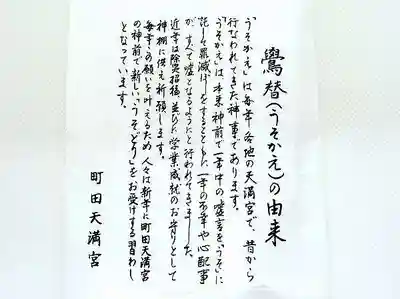 鷽替(うそかえ)の由来
「うそかえ」は毎年各地の天満宮で、昔から
行なわれてきた神事であります。
「うそかえ」は、本来神前で一年中の嘘言を「うそ」に
託して罪滅ぼしをするとともに一年の不幸や心配事
が、すべて嘘となるようにと行われてきました。
近年は除災招福、並びに学業成就のお守りとして
神棚に供え祈願します。
毎年この願いを叶えるため人々は新年に町田天満宮
の神前で新しい「うそどり」をお受けする習わし
となっています。
町田天満宮